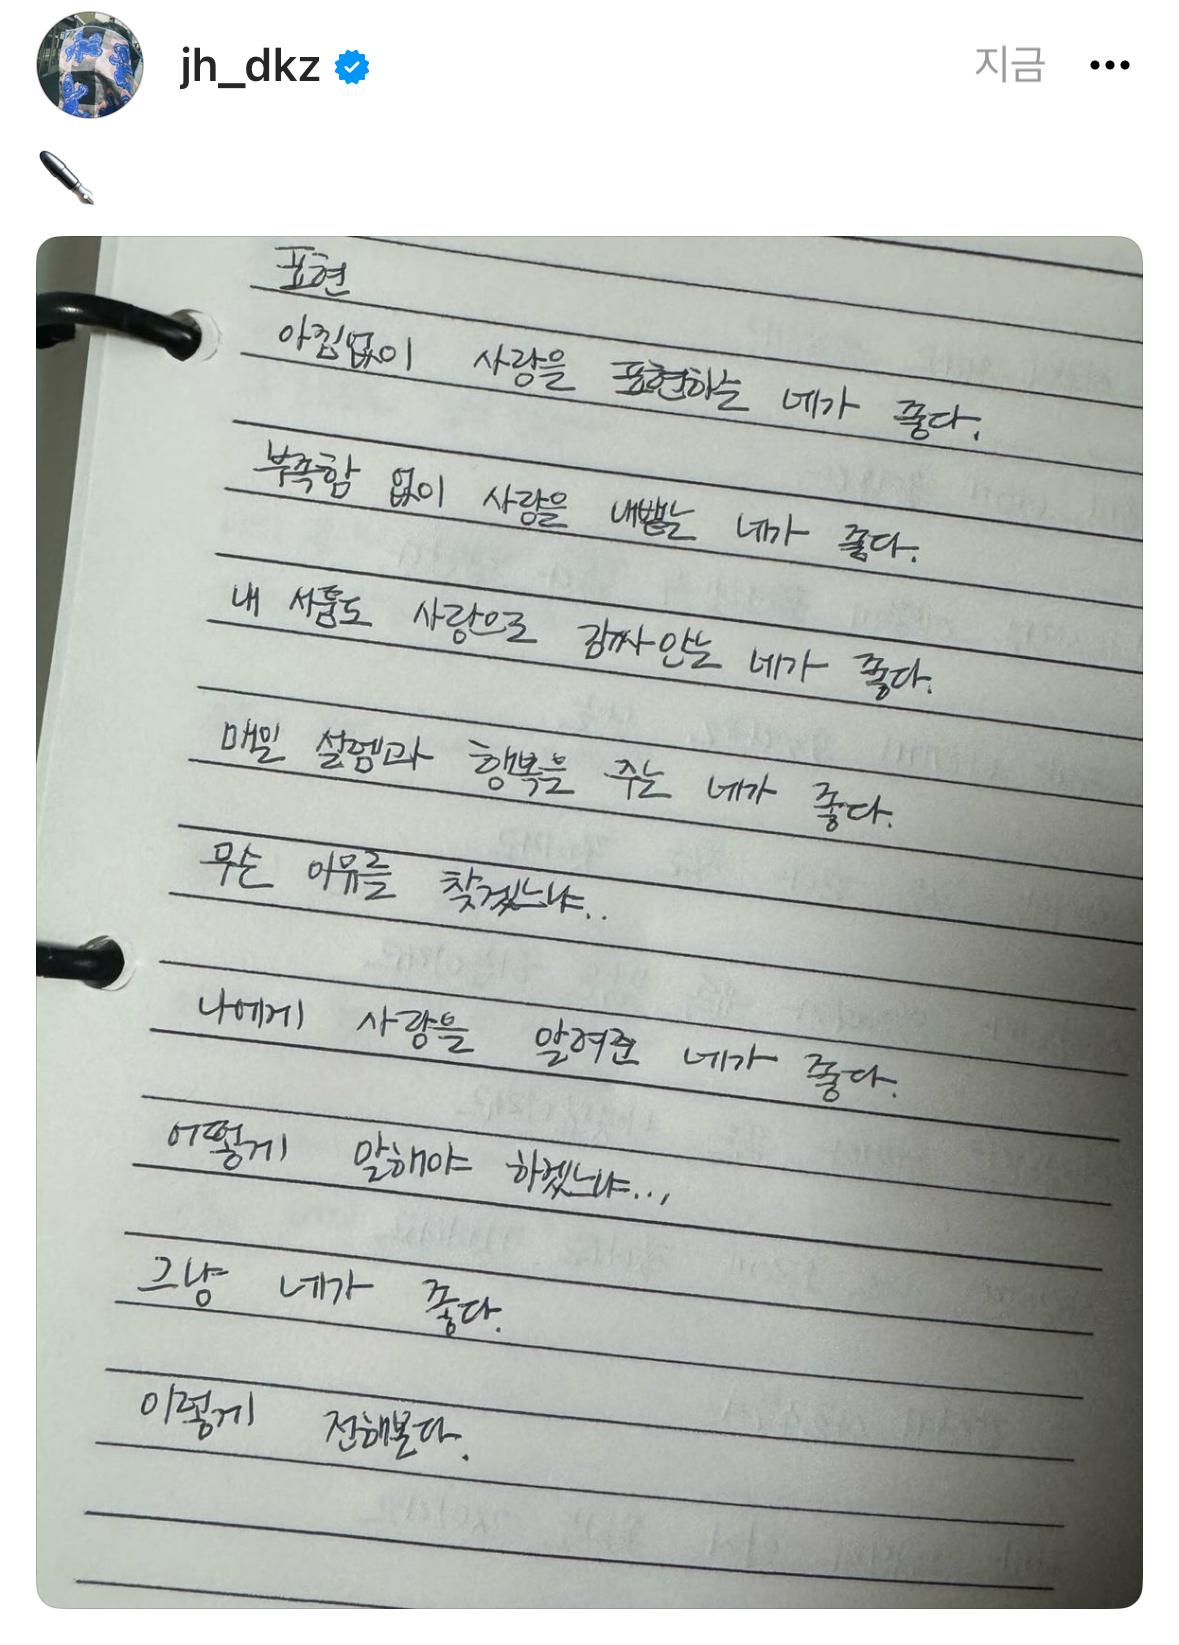 jh_dkz
지금
표현
아낌없이 사랑을 표현하는 네가 좋다.
부족함 없이 사랑을 내뱉는 네가 좋다.
내 서툶도 사랑으로 감싸안는 네가 좋다.
매일 설렘과 행복을 주는 네가 좋다.
무슨 이유를 찾겠느냐..
나에게 사랑을 알려준 네가 좋다.
어떻게 말해야 하겠느냐...
그냥 네가 좋다.
이렇게 전해본다.